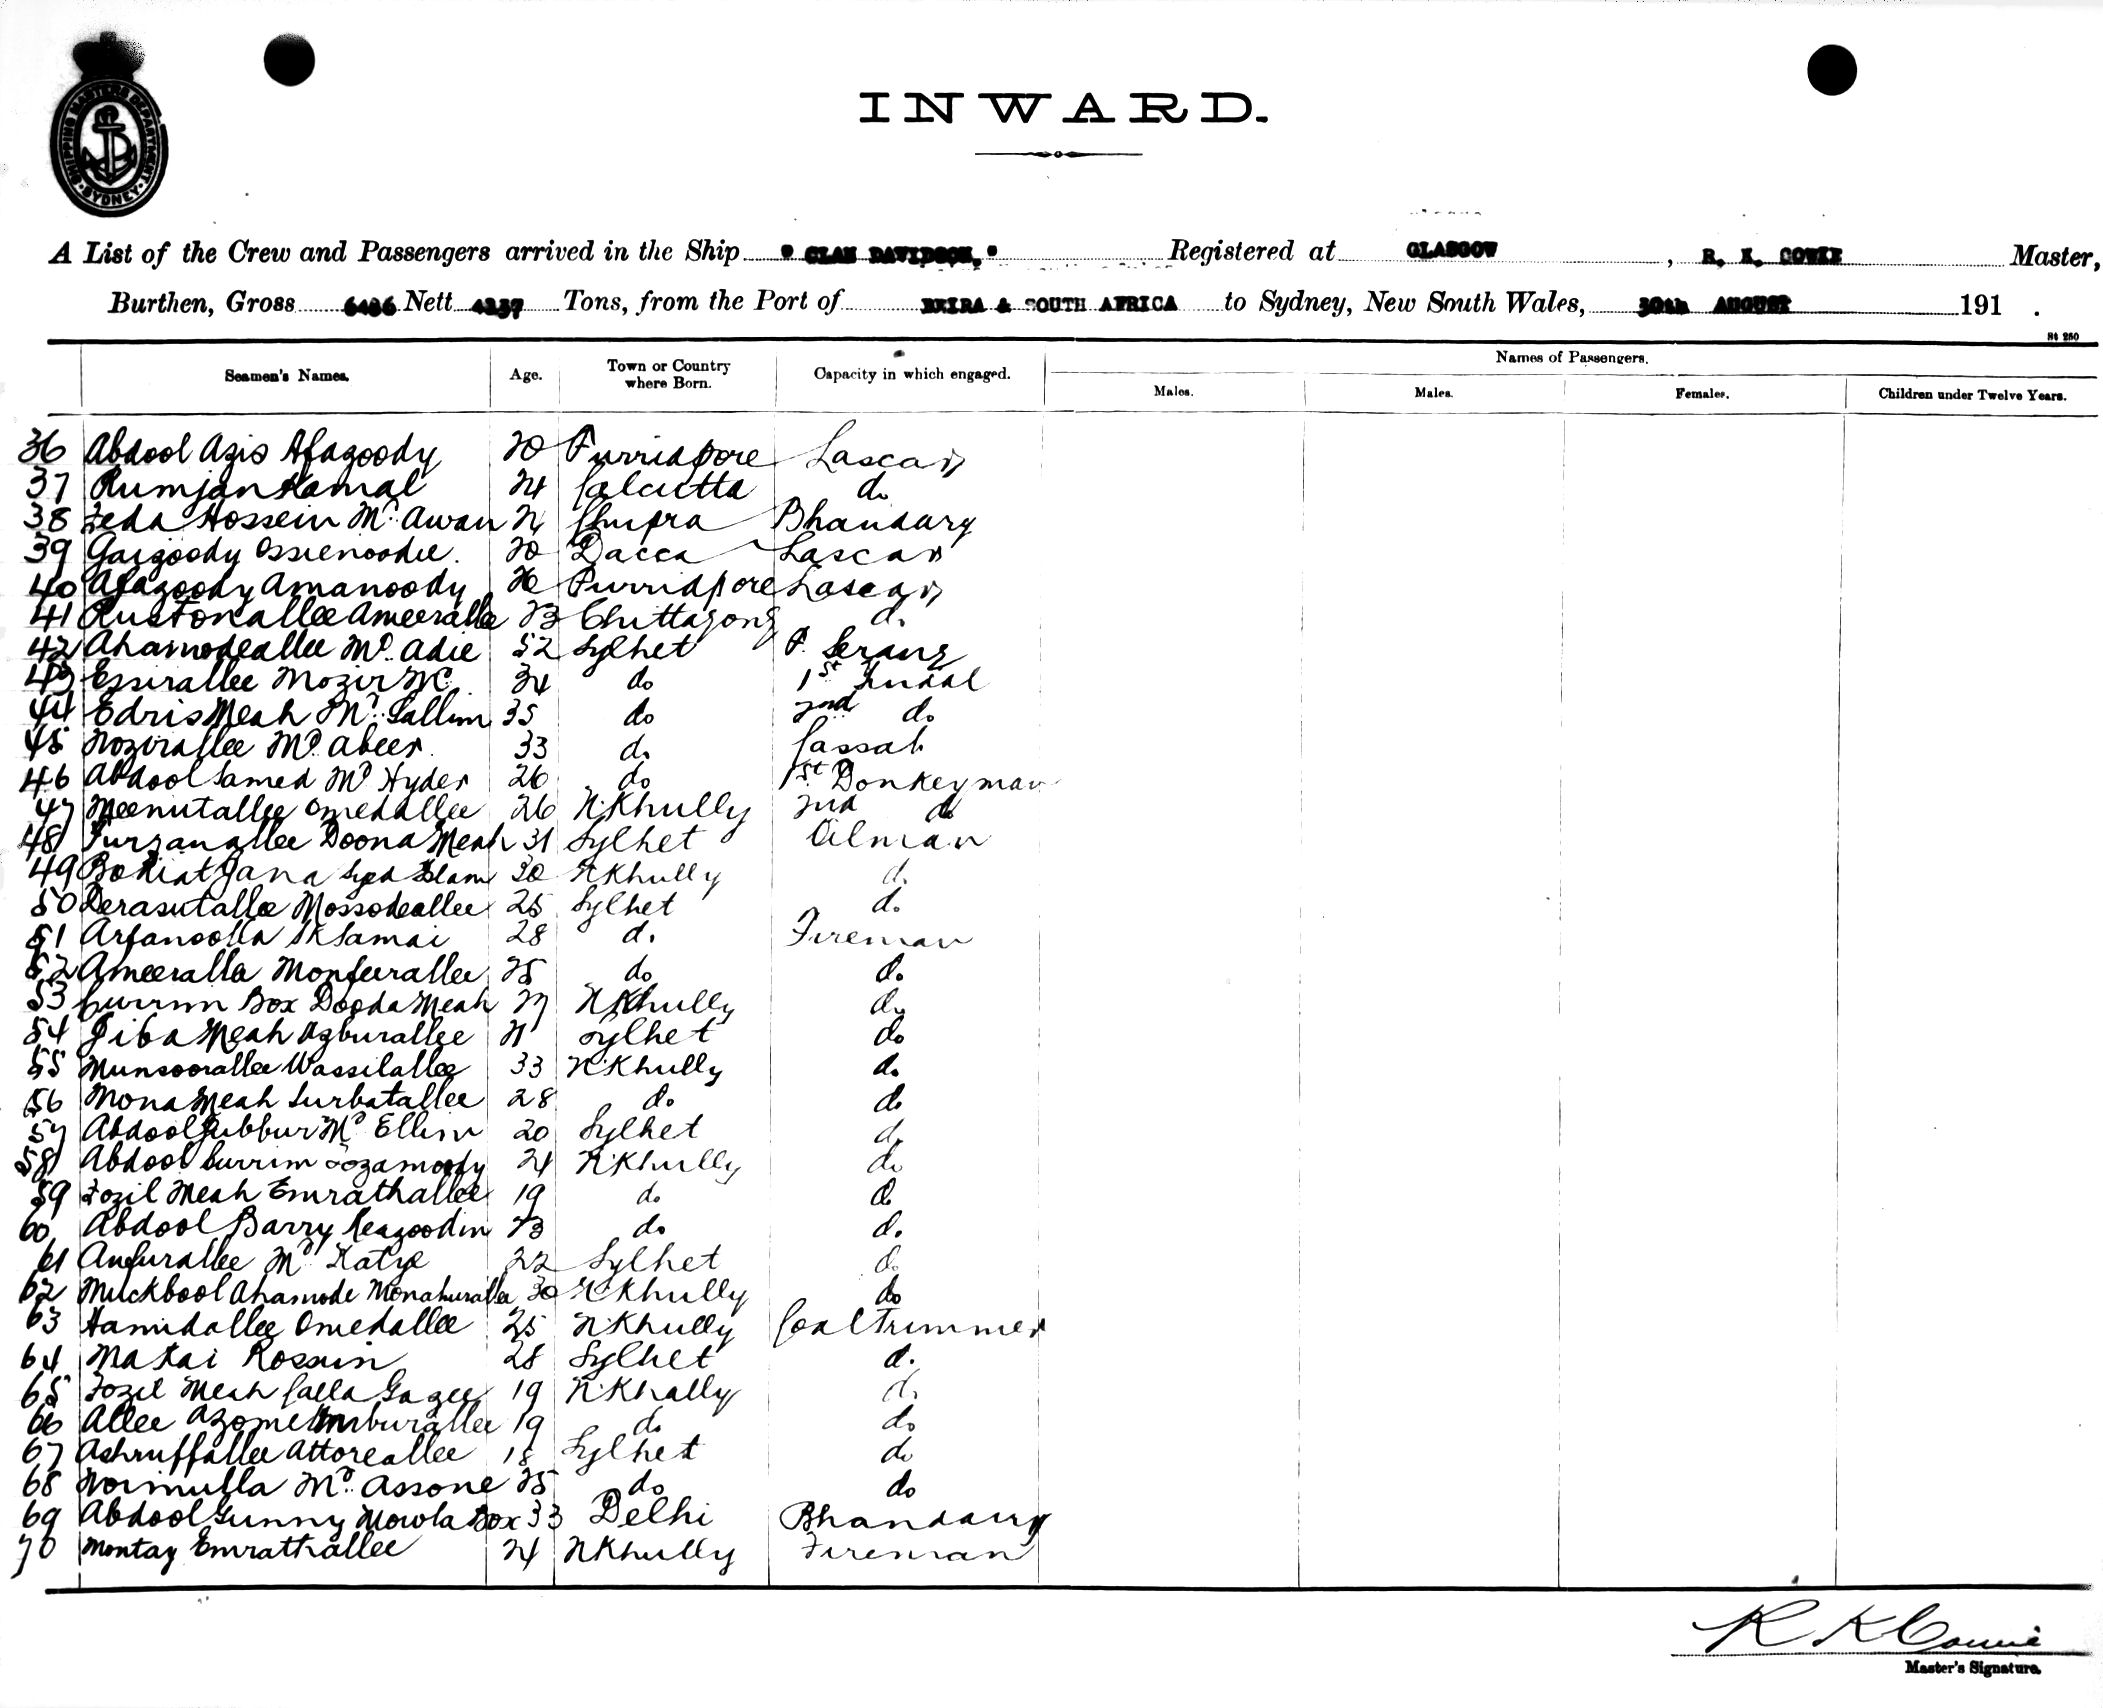 SHIPPING MASTERS DEPARTMENT SYDNEY
INWARD.
A List of the Crew and Passengers arrived in the Ship "CLAN DAVIDSON," Registered at GLASGOW, R. K. COWIE Master,
Burthen, Gross 6486 Nett 4237 Tons, from the Port of BEIRA & SOUTH AFRICA to Sydney, New South Wales, 30th AUGUST 191 .
St 250
Seamen's Names. Age. Town or Country where Born. Capacity in which engaged. Names of Passengers.
Males. Males. Females. Children under Twelve Years.
36 Abdool Azis Afazoody 20 Furridpore Lascar
37 Rumjan Kamal 24 Calcutta do
38 Feda Hossein Md. Awan 24 Chupra Bhandary
39 Gaizoody Ossienoodie. 20 Dacca Lascar
40 Afazoody Amanoody Furridpore Lascar
41 Rustomallee Ameerallee 23 Chittagong do
42 Ahamodeallee Md. Adie 52 Sylhet F. Serang
43 Essirallee Mozir Md 34 do 1st Tindal
44 Edris Meah Md. Sallim 35 do 2nd do
45 Nozirallee Md. Abeer 33 do Cassab
46 Abdool Samed Md Hyder 26 do 1st Donkeyman
47 Meenutallee Omedallee 26 N.Khully 2nd do
48 Furzanallee Doona Meah 31 Sylhet Oilman
49 Bokiat Jana Syed Islam 30 N Khully do
50 Derasutallee Mossodeallee 25 Sylhet do
51 Arfanoolla Sk Samai 28 do Fireman
52 Ameeralla Monfeerallee 25 do do
53 Currim Box Dooda Meah 27 N.Khully do
54 Jiba Meah Azburallee 21 Sylhet do
55 Munsoorallee Wassilallee 33 N.Khully do
56 Mona Meah Surbatallee 28 do do
57 Abdool Jubbur Md Ellim 20 Sylhet do
58 Abdool Currim 24 N.Khully do
59 Fozil Meah Emrathallee 19 do do
60 Abdool Barry Reazoodin 23 do do
61 Anfurallee Md. 22 Sylhet do
62 Muckbool Ahamode Monahurallee 30 N Khully do
63 Hamidallee Omedallee 25 N.Khully Coal Trimmer
64 Makai Rossin 28 Sylhet do
65 Fozil Meah Calla Gazee 19 N.Khally do
66 Allee Azome 19 do do
67 Ashruffallee Attoreallee 18 Sylhet do
68 Noimulla Md. Assone 25 do do
69 Abdool Gunny Mowla Box 33 Delhi Bhandary
70 Montaz Emrathallee 24 N Khully Fireman
R K Cowie
Master's Signature.